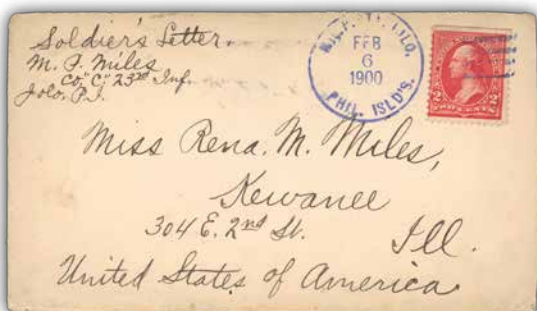 Soldier's Letter.
M. P. Miles
Co. "C." 23rd Inf.
Jolo. P.I.
FEB
6
1900
PHIL. ISLD'S.
2 2
Miss Rena. M. Miles,
Kewanee
304 E. 2nd St.
Ill.
United States of America